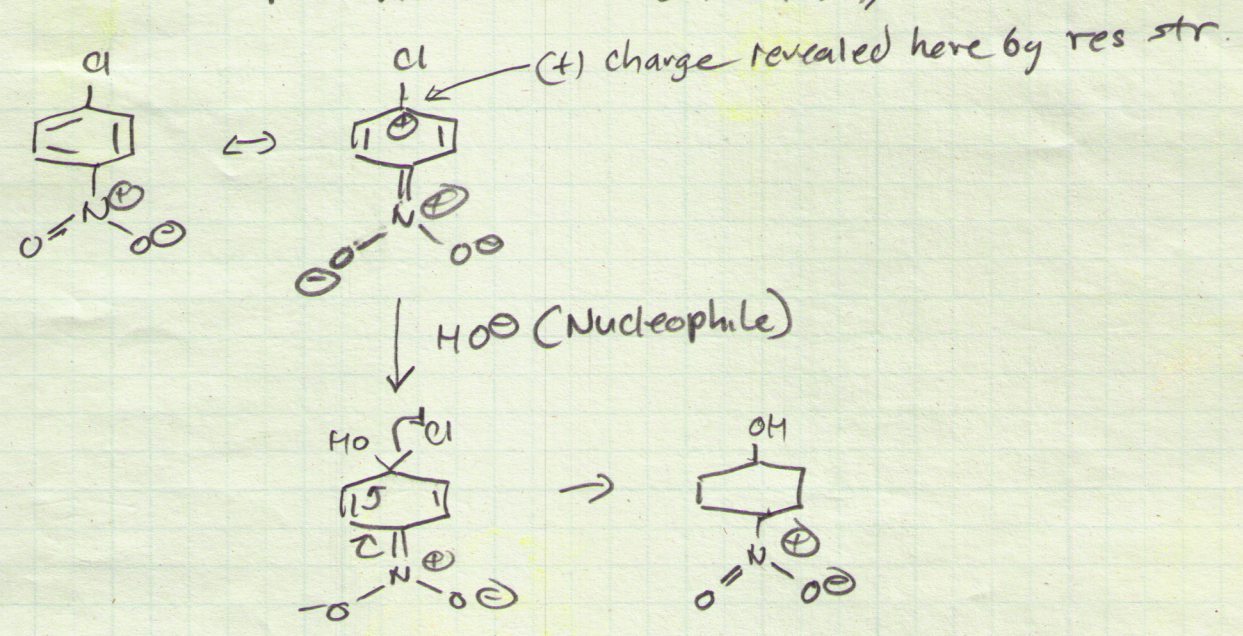 Cl
Cl
(+) charge revealed here by res str.
N⊕
O
O⊖
⊕
N⊕
O⊖
O⊖
HO⊖ (Nucleophile)
HO
Cl
N⊕
-O
O⊖
OH
N⊕
O
O⊖